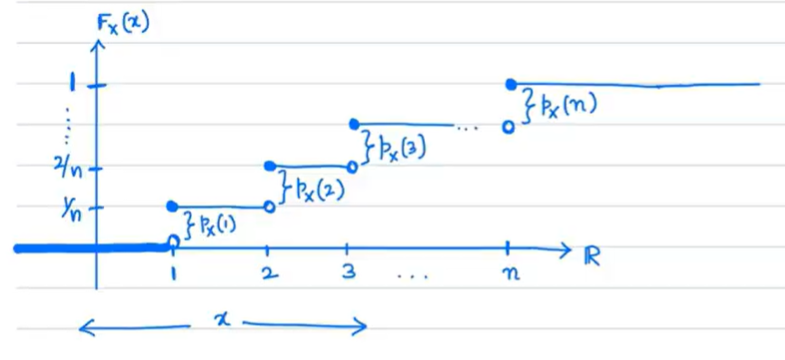 Fₓ(x)
1
⋮
2/n
1/n
}pₓ(1)
}pₓ(2)
}pₓ(3)
...
}pₓ(n)
1 2 3 ... n
ℝ
x